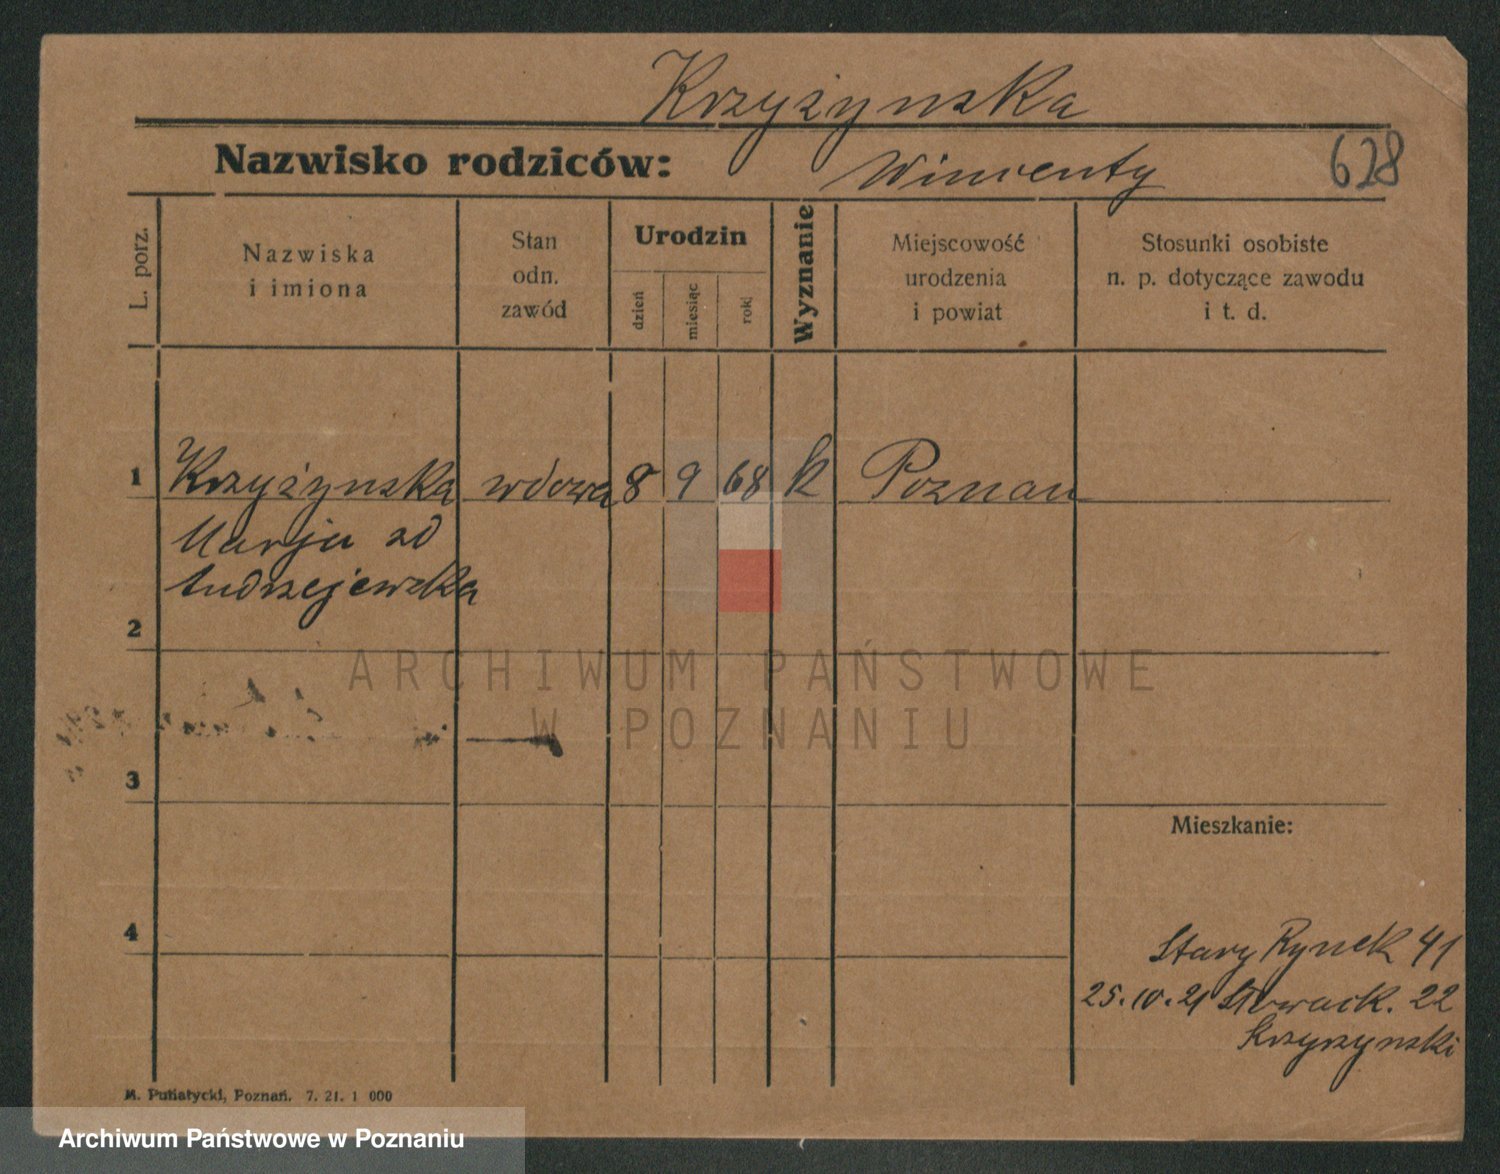 Krzyżynska
Nazwisko rodziców:
Wincenty
628
L. porz.
Nazwiska
i imiona
Stan
odn.
zawód
Urodzin
dzień
miesiąc
rok
Wyznanie
Miejscowość
urodzenia
i powiat
Stosunki osobiste
n. p. dotyczące zawodu
i t. d.
1 Krzyżynska wdowa 8 9 68 k Poznan
Marja zd
Andrzejewska
2
ARCHIWUM PAŃSTWOWE
W POZNANIU
3
Mieszkanie:
4
Stary Rynek 41
25.10.21 Słowack. 22
Krzyzynski
M. Putiatycki, Poznań. 7. 21. 1 000
Archiwum Państwowe w Poznaniu